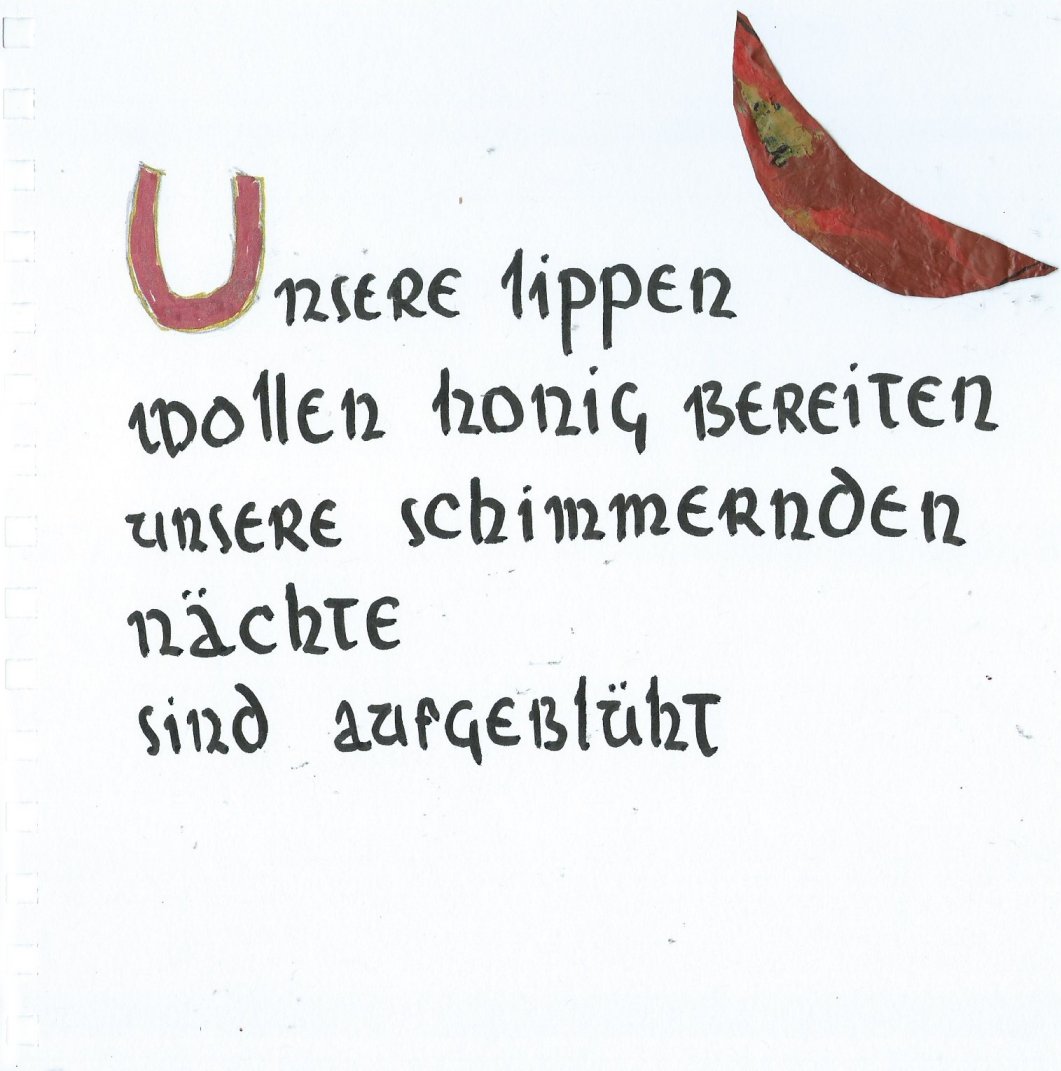 Unsere lippen
wollen honig bereiten
unsere schimmernden
nächte
sind aufgeblüht